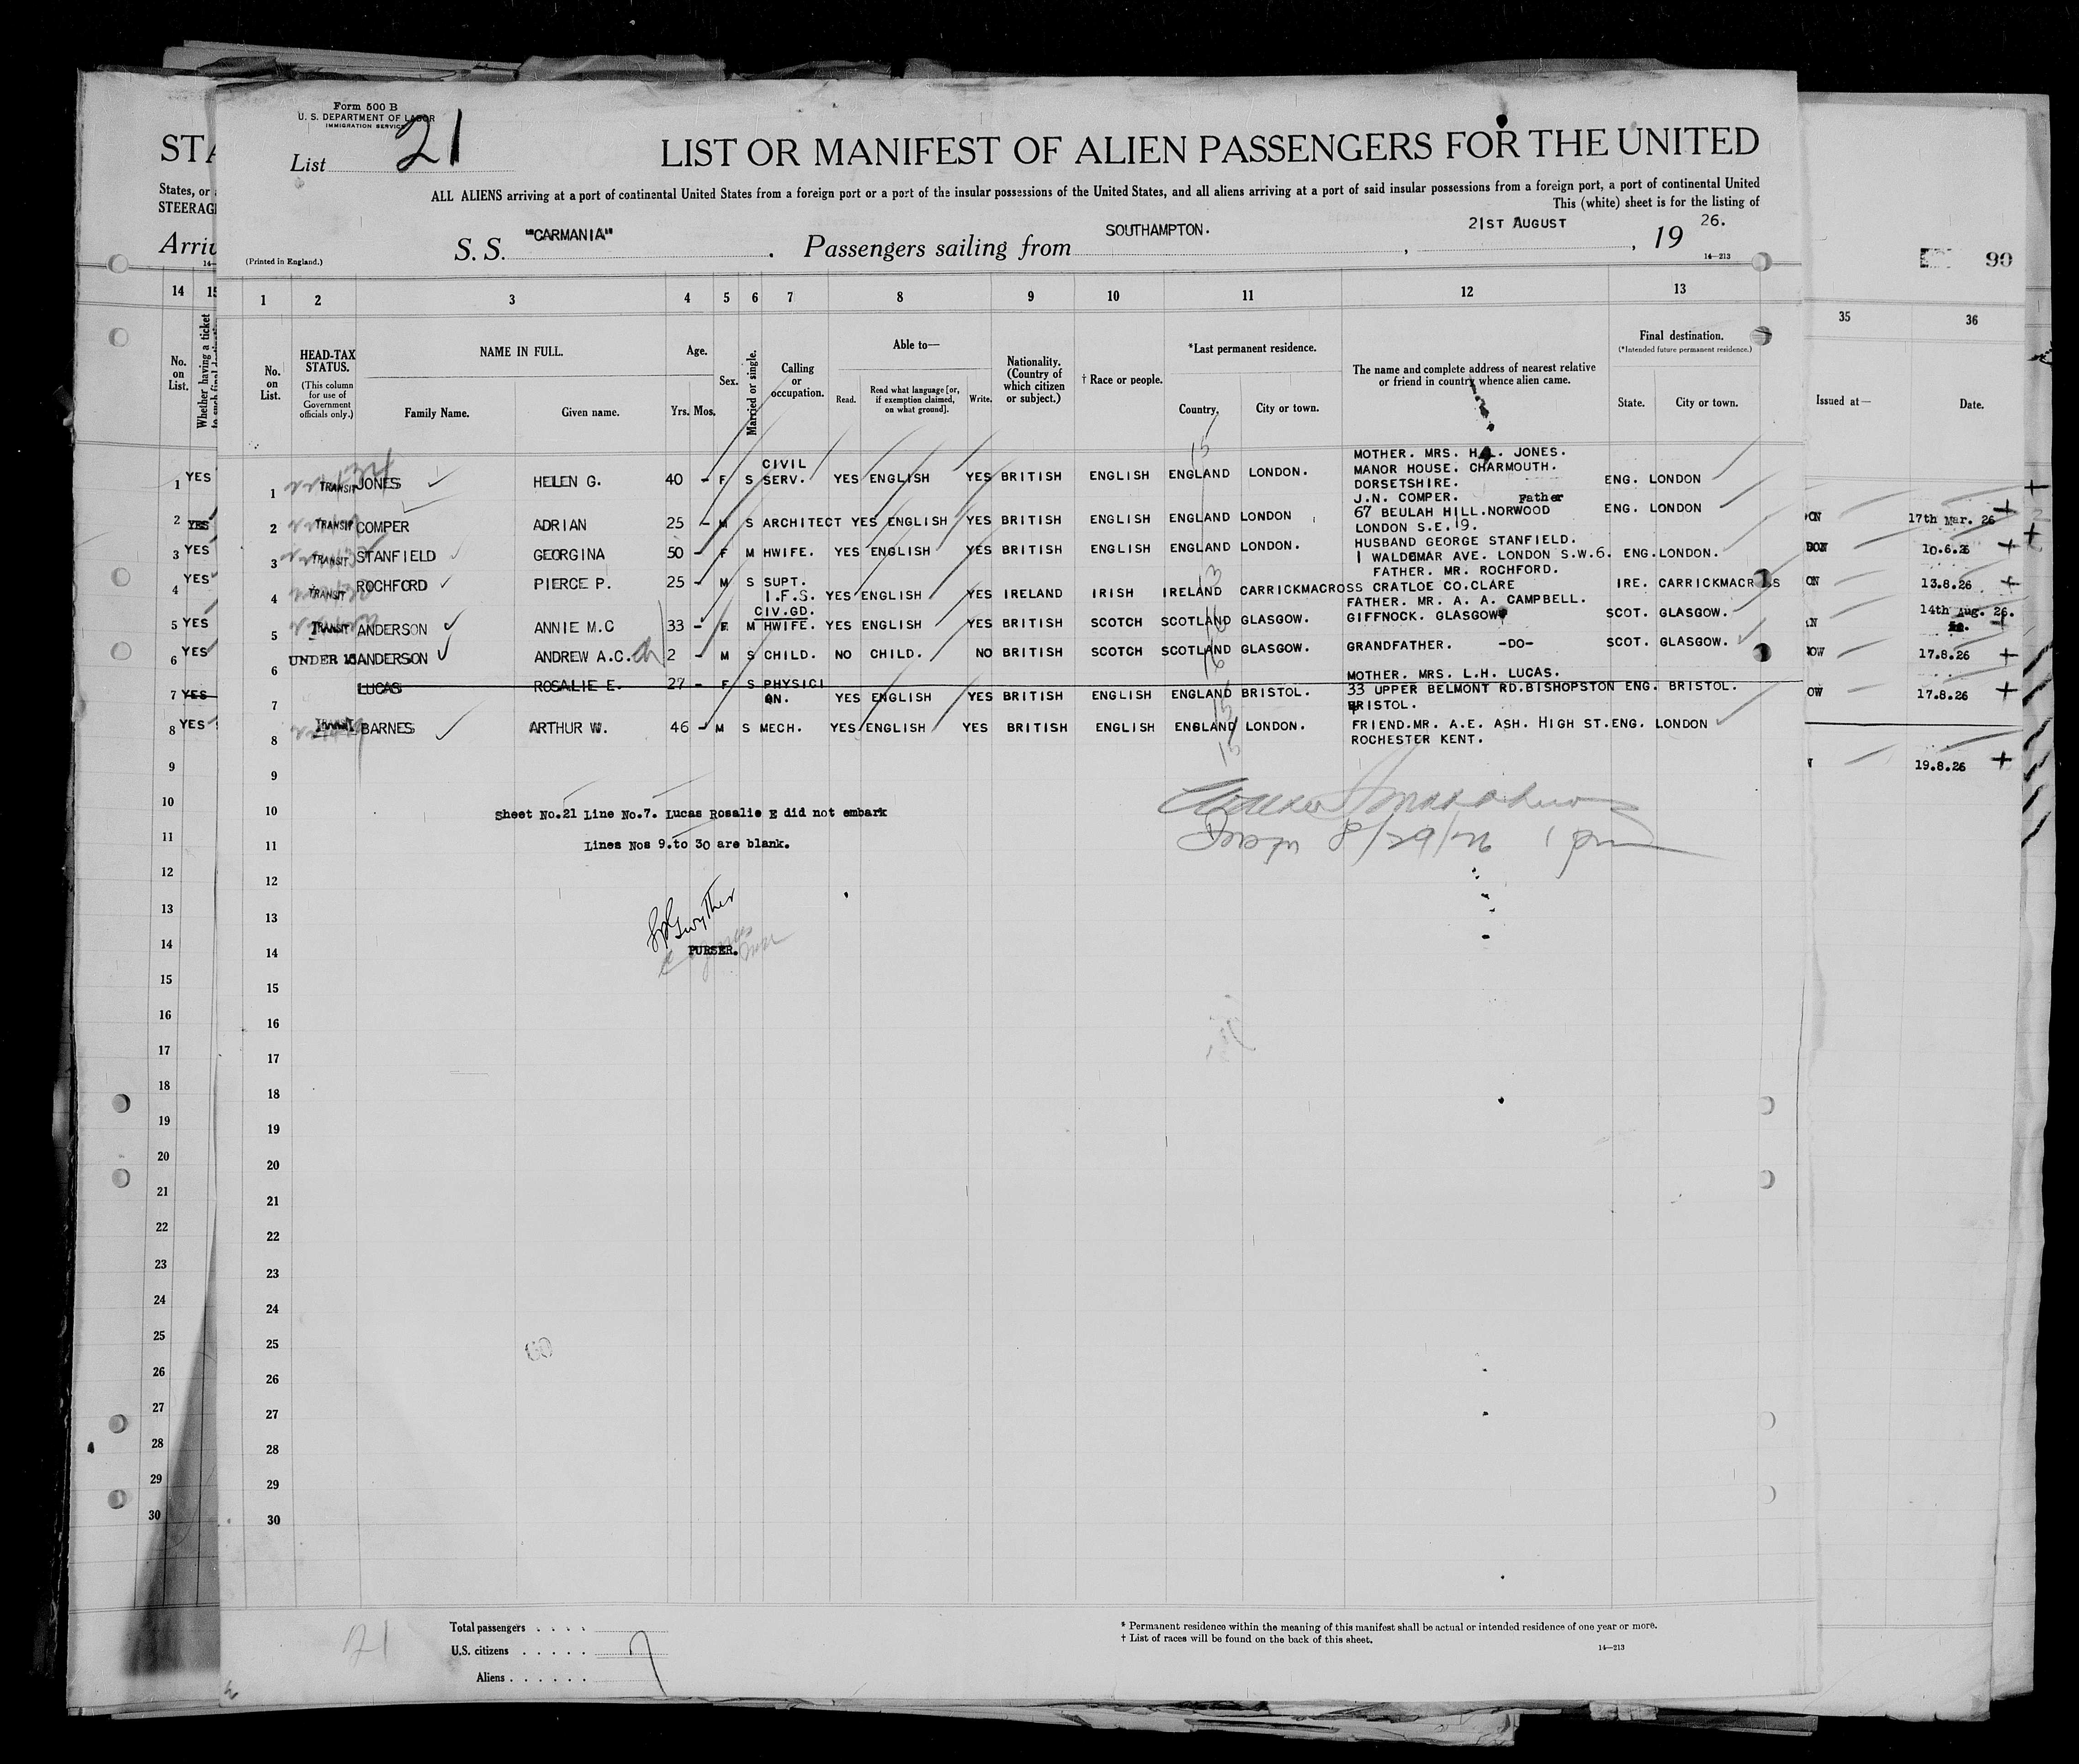 Form 500 B
U. S. DEPARTMENT OF LABOR
IMMIGRATION SERVICE
List 21
LIST OR MANIFEST OF ALIEN PASSENGERS FOR THE UNITED
STA
ALL ALIENS arriving at a port of continental United States from a foreign port or a port of the insular possessions of the United States, and all aliens arriving at a port of said insular possessions from a foreign port, a port of continental United
States, or
STEERAG
This (white) sheet is for the listing of
Arriv
S. S. "CARMANIA" . Passengers sailing from SOUTHAMPTON. , 21ST AUGUST , 19 26.
(Printed in England.)
14—213
90
14 15 1 2 3 4 5 6 7 8 9 10 11 12 13 35 36
No. on List.
Whether having a ticket
No. on List.
HEAD-TAX STATUS.
(This column for use of Government officials only.)
NAME IN FULL.
Family Name. Given name.
Age.
Yrs. Mos.
Sex.
Married or single.
Calling or occupation.
Able to—
Read. Read what language [or, if exemption claimed, on what ground]. Write.
Nationality. (Country of which citizen or subject.)
† Race or people.
*Last permanent residence.
Country. City or town.
The name and complete address of nearest relative or friend in country whence alien came.
Final destination.
(*Intended future permanent residence.)
State. City or town.
Issued at— Date.
1 YES 1 TRANSIT JONES HELEN G. 40 - F S CIVIL SERV. YES ENGLISH YES BRITISH ENGLISH ENGLAND LONDON. MOTHER. MRS. H. JONES. MANOR HOUSE. CHARMOUTH. DORSETSHIRE. ENG. LONDON
2 YES 2 TRANSIT COMPER ADRIAN 25 - M S ARCHITECT YES ENGLISH YES BRITISH ENGLISH ENGLAND LONDON J.N. COMPER. Father 67 BEULAH HILL.NORWOOD LONDON S.E.19. ENG. LONDON
17th Mar. 26
3 YES 3 TRANSIT STANFIELD GEORGINA 50 - F M HWIFE. YES ENGLISH YES BRITISH ENGLISH ENGLAND LONDON. HUSBAND GEORGE STANFIELD. 1 WALDEMAR AVE. LONDON S.W.6. ENG.LONDON.
10.6.26
4 YES 4 TRANSIT ROCHFORD PIERCE P. 25 - M S SUPT. I.F.S. CIV.GD. YES ENGLISH YES IRELAND IRISH IRELAND CARRICKMACROSS FATHER. MR. ROCHFORD. CRATLOE CO.CLARE IRE. CARRICKMACROSS
13.8.26
5 YES 5 TRANSIT ANDERSON ANNIE M.C 33 - F M HWIFE. YES ENGLISH YES BRITISH SCOTCH SCOTLAND GLASGOW. FATHER. MR. A. A. CAMPBELL. GIFFNOCK. GLASGOW SCOT. GLASGOW.
14th Aug. 26.
6 YES 6 UNDER 16 ANDERSON ANDREW A.C. 2 - M S CHILD. NO CHILD. NO BRITISH SCOTCH SCOTLAND GLASGOW. GRANDFATHER. -DO- SCOT. GLASGOW.
17.8.26
7 YES 7 LUCAS ROSALIE E. 27 - F S PHYSICI AN. YES ENGLISH YES BRITISH ENGLISH ENGLAND BRISTOL. MOTHER. MRS. L.H. LUCAS. 33 UPPER BELMONT RD.BISHOPSTON BRISTOL. ENG. BRISTOL.
17.8.26
8 YES 8 BARNES ARTHUR W. 46 - M S MECH. YES ENGLISH YES BRITISH ENGLISH ENGLAND LONDON. FRIEND.MR. A.E. ASH. HIGH ST. ROCHESTER KENT. ENG. LONDON
19.8.26
9 9
10 10 Sheet No.21 Line No.7. Lucas Rosalie E did not embark
11 11 Lines Nos 9.to 30 are blank.
8/29/26 1 pm
12 12
13 13
14 14 PURSER.
15 15
16 16
17 17
18 18
19 19
20 20
21 21
22 22
23 23
24 24
25 25
26 26
27 27
28 28
29 29
30 30
21
Total passengers . . . .
U.S. citizens . . . . . 7
Aliens . . . . . .
* Permanent residence within the meaning of this manifest shall be actual or intended residence of one year or more.
† List of races will be found on the back of this sheet.
14—213